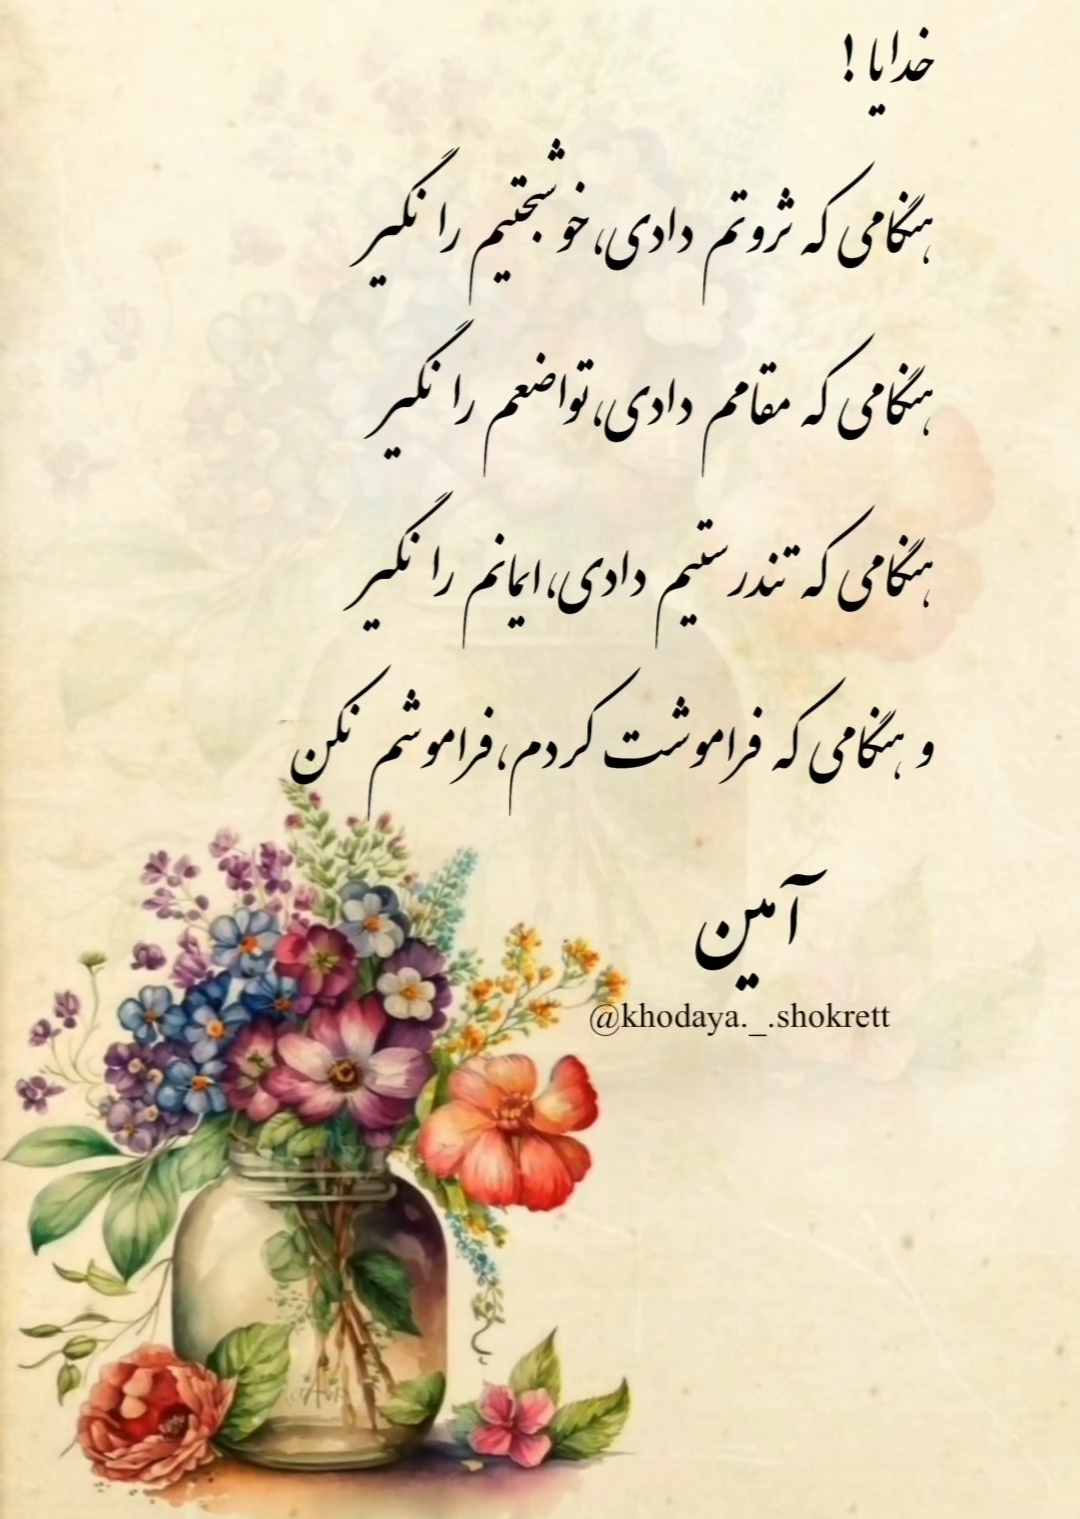 خدایا !
هنگامی که ثروتم دادی، خوشبختیم را نگیر
هنگامی که مقامم دادی، تواضعم را نگیر
هنگامی که تندرستیم دادی، ایمانم را نگیر
و هنگامی که فراموشت کردم، فراموشم نکن
آمین
@khodaya._.shokrett